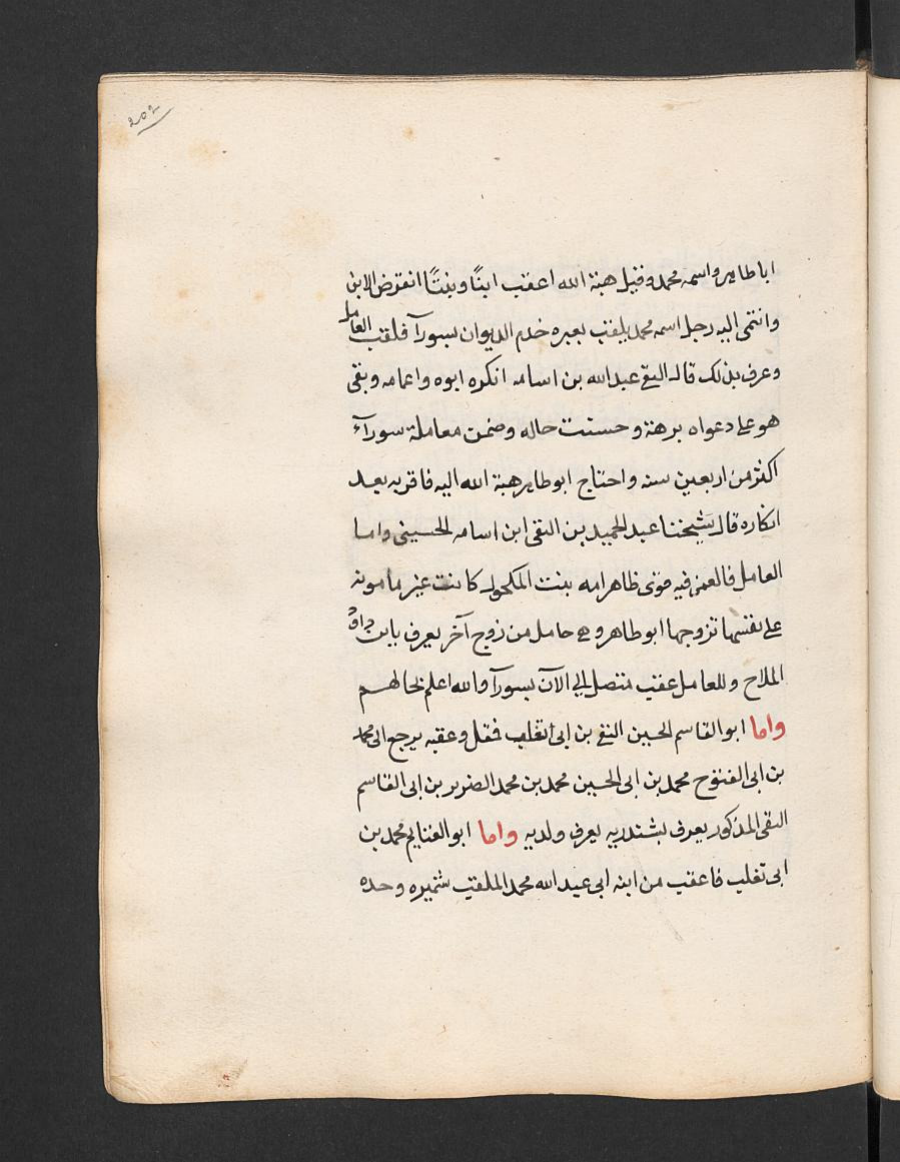 202
ابا طاهر واسمه محمد وقيل هبة الله اعقب ابنًا وبنتًا انقرض الابن
وانتمى اليه رجل اسمه محمد يلقب بعبره خدم الديوان بسورآ فلقب العامل
وعرف بذلك قال التقى عبدالله بن اسامه انكره ابوه واعمامه وبقى
هو على دعواه برهة وحسنت حاله وضمن معاملة سورآء
اكثر من اربعين سنه واحتاج ابو طاهر هبة الله اليه فاقر به بعد
انكاره قال شيخنا عبد الحميد بن التقى ابن اسامه الحسينى واما
العامل فالغمز فيه قوى ظاهر امه بنت المكحول كانت غير مامونه
على نفسها تزوجها ابو طاهر وهى حامل من زوج آخر يعرف بابن داود
الملاح وللعامل عقب متصل الى الآن بسورآ والله اعلم بحالهم
واما ابو القاسم الحسين التقى بن ابى تغلب فقل وعقبه يرجع الى محمد
بن ابى الفتوح محمد بن ابى الحسين محمد بن محمد الضرير بن ابى القاسم
التقى المذكور يعرف بشنديه يعرف ولديه واما ابو الغنايم محمد بن
ابى تغلب فاعقب من ابنه ابى عبد الله محمد الملقب شميره وحده